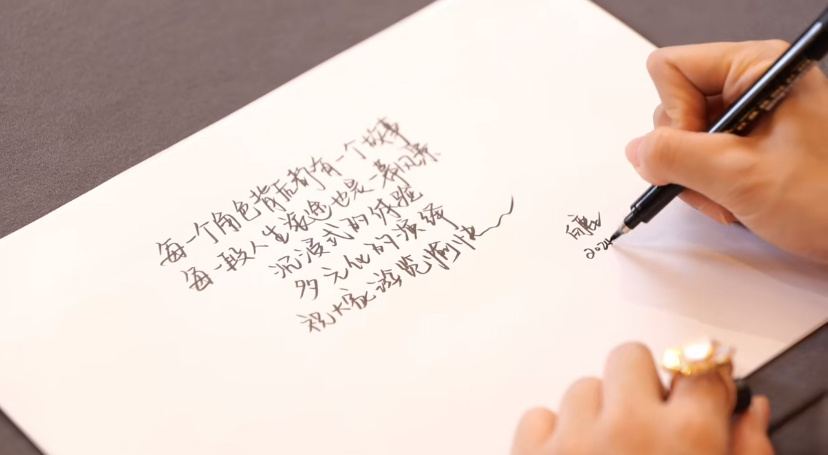 每一个角色背后都有一个故事
每一段人生旅途也是一舞风景
沉浸式的体验
多元化的演绎
祝大家游览愉快
2024